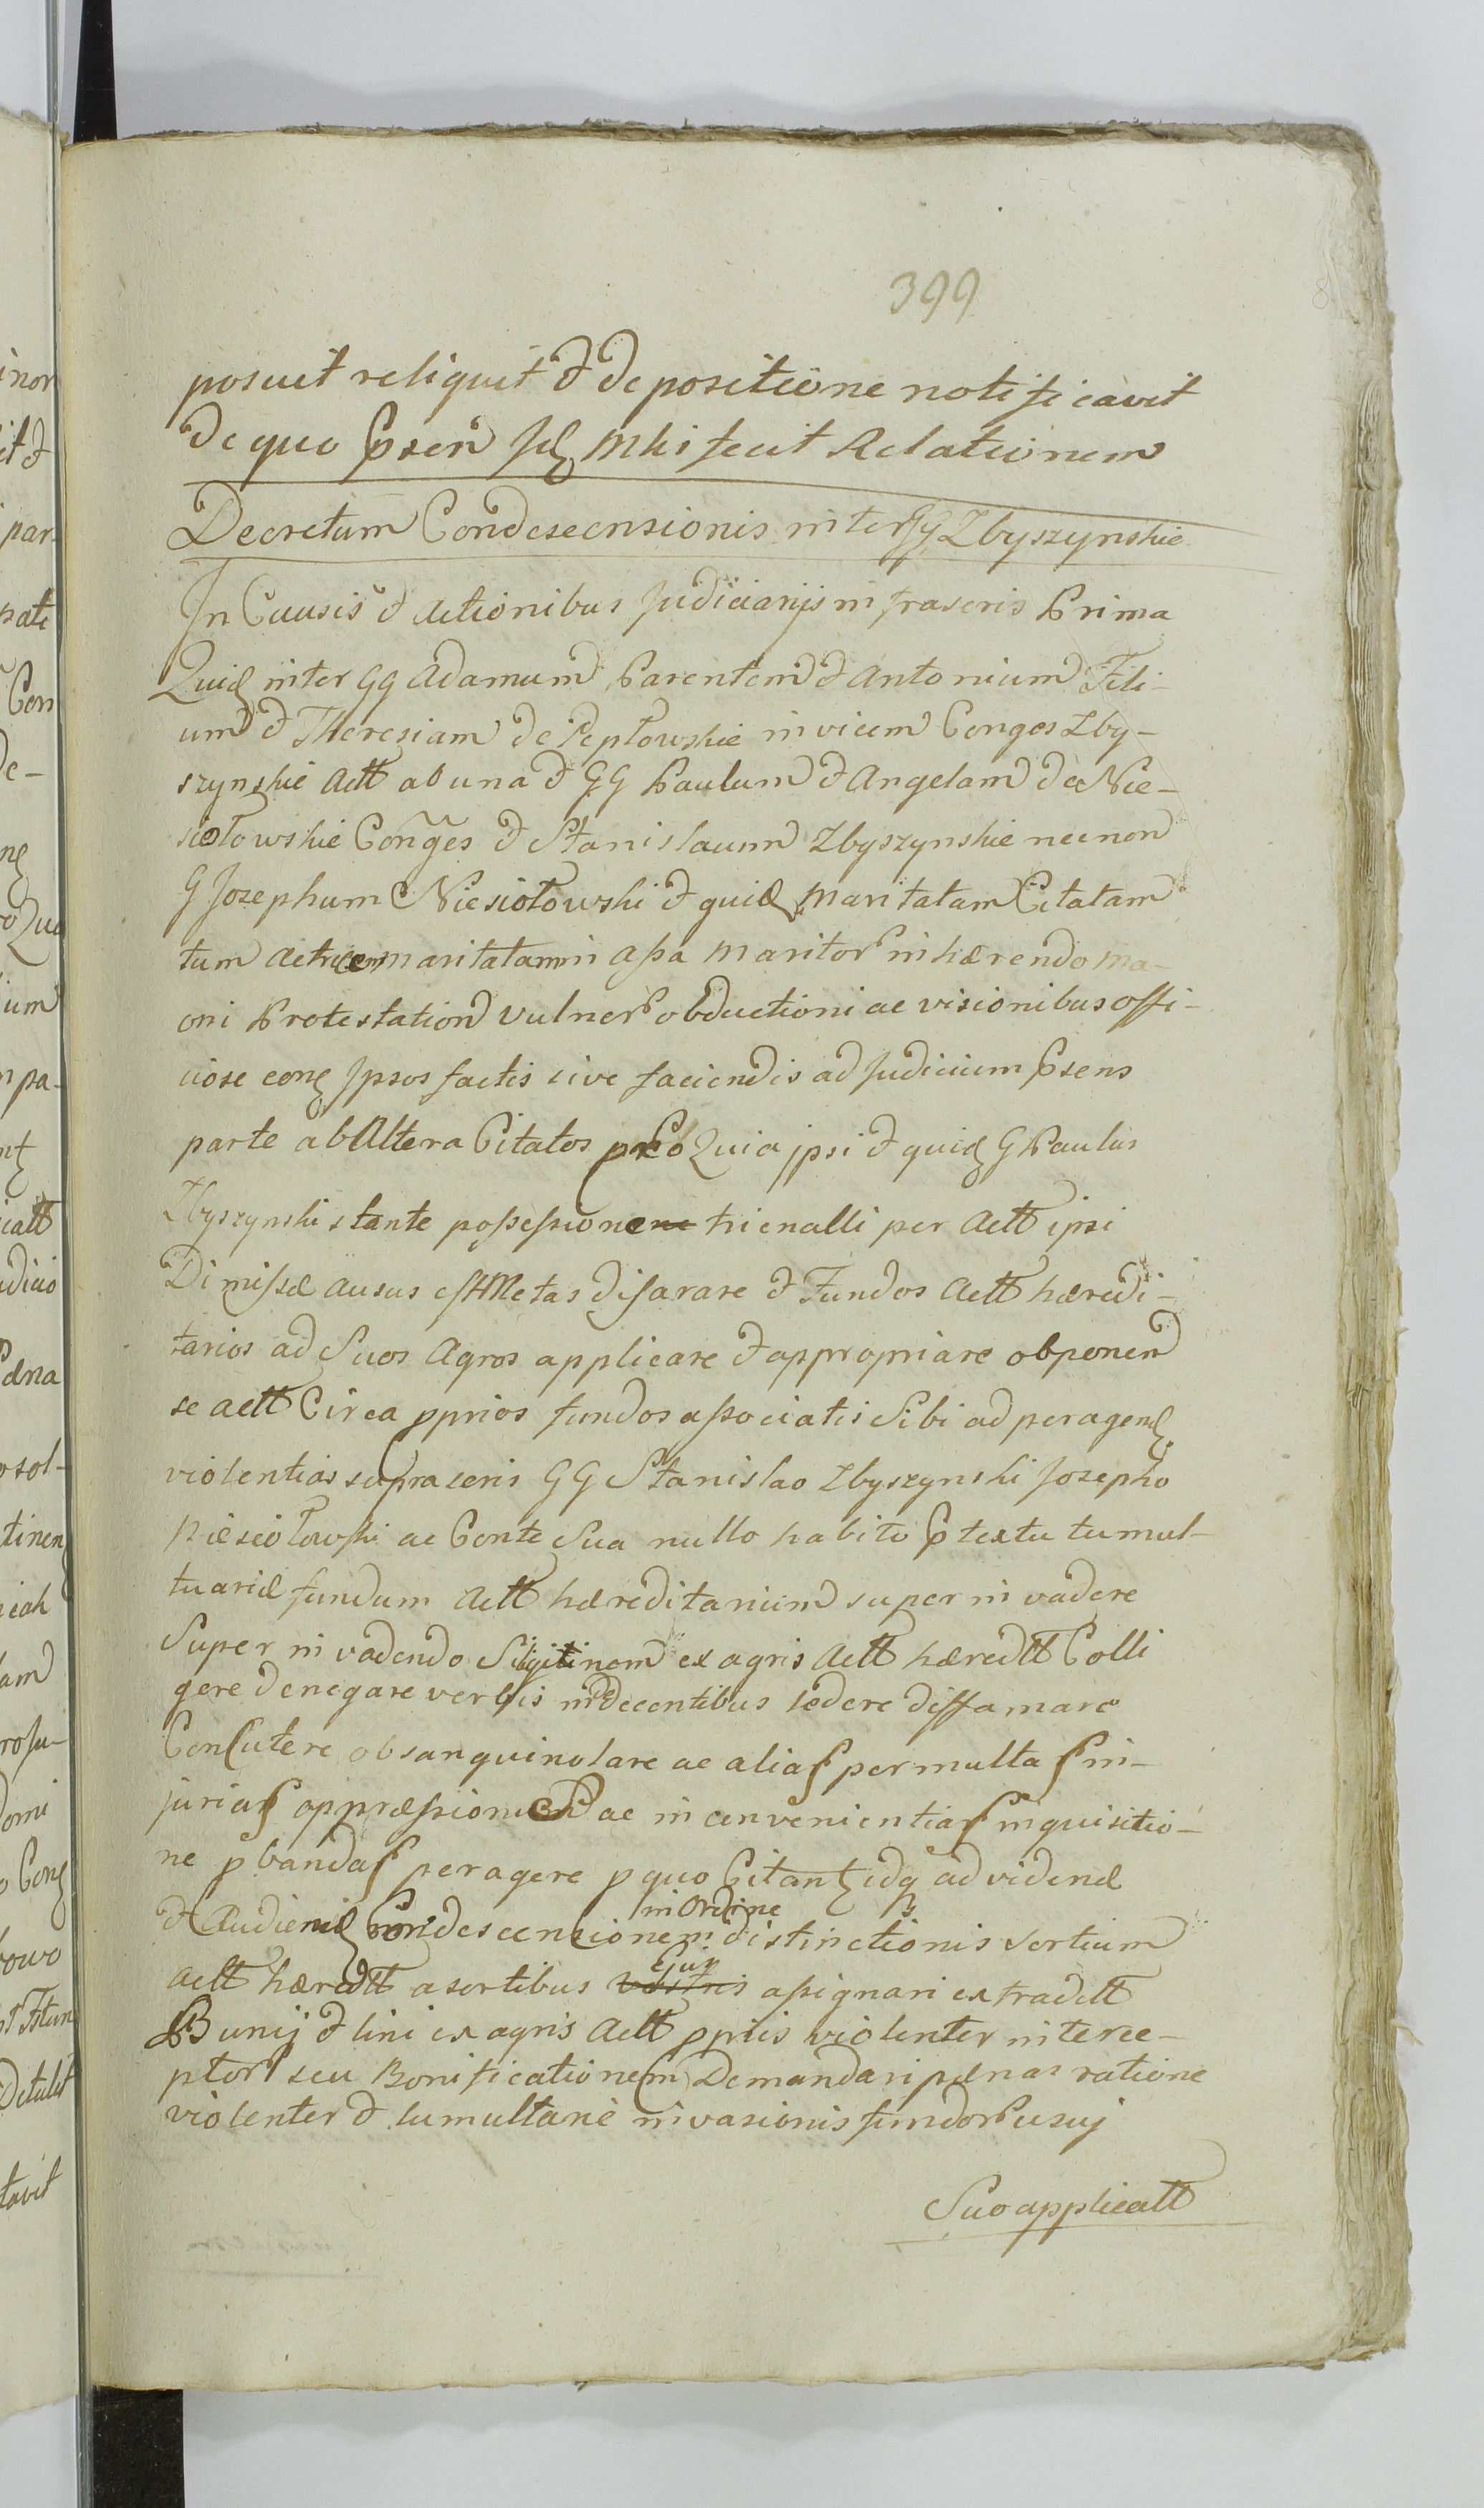 399
posuit reliquit & de positione notificavit
de quo Prsen Jud Mhi fecit Relationem
Decretum Condescensionis inter GG Zbyszynskie
In Causis & Actionibus Judiciarijs infrascris Prima
Quid inter GG Adamum Parentem & Antonium Fili-
um & Theresiam de Peptowskie invicem Conges Zby-
szynskie Actt ab una & GG Paulum & Angelam de Nie-
siołowskie Conges & Stanislaum Zbyszynskie necnon
G Josephum Niesiołowski & quid maritatam Citatam
tum Actricem maritatam in assa maritor inhærendo ma-
oni Protestation vulner obductioni ac visionibus offi-
ciose con Ipsos factis sive faciendis ad Judicium Prsens
parte ab Altera Citatos pro Quia ipsi & quid G Paulus
Zbyszynski stante possessione trienalli per Actt ipsi
Dimissæ ausus est Metas disarare & Fundos Actt hæredi-
tarios ad Suos Agros applicare & appropriare obponen
se actt Circa pprios fundos associatis Sibi ad peragend
violentias suprascris GG Stanislao Zbyszynski Josepho
Niesiołowski ac Conte Sua nullo habito Prtextu tumul-
tuarie fundum Actt hæreditarium super invadere
Super invadendo Siligitinem ex agris Actt hæredtt Colli
gere denegare verbis indecentibus lædere diffamare
Concutere obsanguinolare ac alias permultas in-
jurias oppræssiones ac inconvenientias inquisitio-
ne pbandas peragere p quo Citant idq ad vidend
& Audiend Condescensionem in Ordine distinctionis sortium
Actt hæredtt a sortibus Eius assignari extradtt
Bunij & lini ex agris Actt ppriis violenter interce-
ptor seu Bonificationem Demandari pænas ratione
violenter & tumultarie invasionis fundor usuj
Suo applicatt